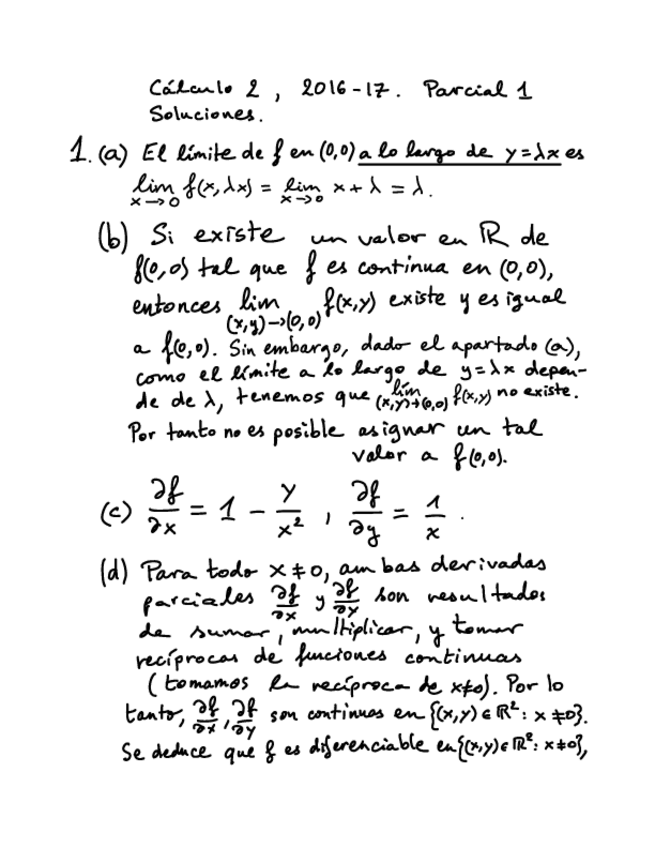 Cálculo 2, 2016-17. Parcial 1
Soluciones.
1. (a) El límite de f en (0,0) a lo largo de y=λx es
lim x→0 f(x,λx) = lim x→0 x+λ = λ.
(b) Si existe un valor en ℝ de
f(0,0) tal que f es continua en (0,0),
entonces lim (x,y)→(0,0) f(x,y) existe y es igual
a f(0,0). Sin embargo, dado el apartado (a),
como el límite a lo largo de y=λx depen-
de de λ, tenemos que lím (x,y)→(0,0) f(x,y) no existe.
Por tanto no es posible asignar un tal
valor a f(0,0).
(c) ∂f/∂x = 1 - y/x², ∂f/∂y = 1/x.
(d) Para todo x≠0, ambas derivadas
parciales ∂f/∂x y ∂f/∂y son resultados
de sumar, multiplicar, y tomar
recíprocas de funciones continuas
(tomamos la recíproca de x≠0). Por lo
tanto, ∂f/∂x, ∂f/∂y son continuas en {(x,y)∈ℝ²: x≠0}.
Se deduce que f es diferenciable en {(x,y)∈ℝ²: x≠0},